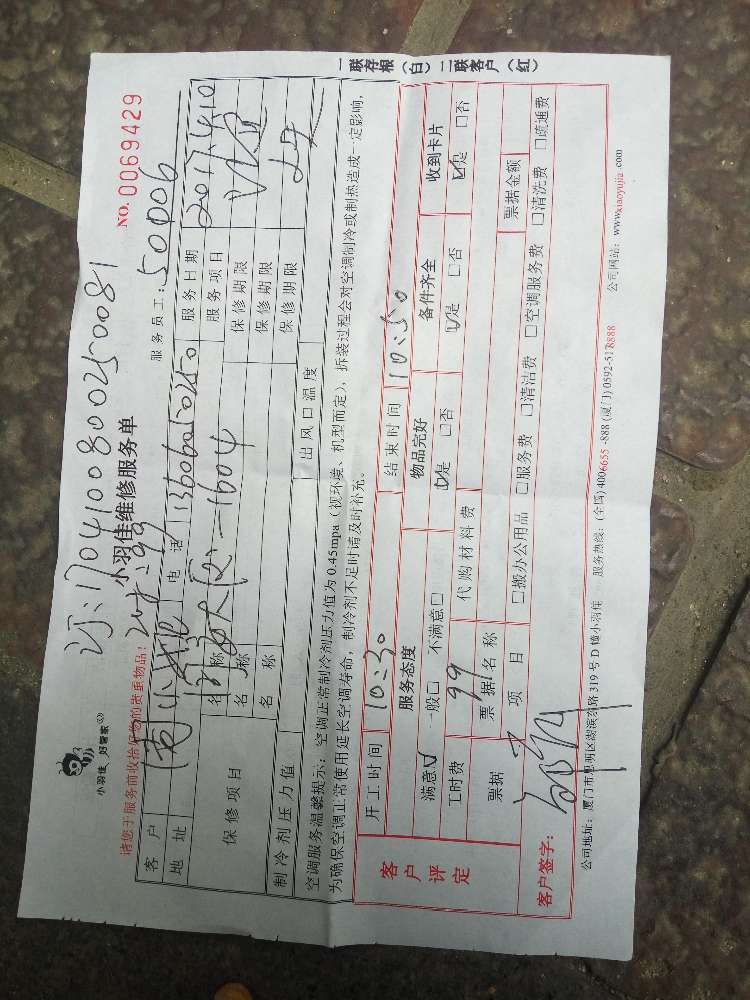 订:170410080025 0081
小羽佳 好管家
小羽佳维修服务单
NO.0069429
请您于服务前收拾好您的贵重物品!
服务员工:50006
客户 电话 13606050250 服务日期 2017.4.10
地址 -1604 服务项目
保修项目 名称 保修期限
名称 保修期限
名称 保修期限
制冷剂压力值 出风口温度
空调服务温馨提示: 空调正常制冷剂压力值为0.45mpa(视环境、机型而定),拆装过程会对空调制冷或制热造成一定影响,
为确保空调正常使用延长空调寿命,制冷剂不足时请及时补充。
客户评定
开工时间 10:30 结束时间 10:50
服务态度 物品完好 备件齐全 收到卡片
满意☑ 一般□ 不满意□ ☑是 □否 ☑是 □否 ☑是 □否
工时费 99 代购材料费
票据 票据名称 票据金额
项目 □搬办公用品 □服务费 □清洁费 □空调服务费 □清洗费 □疏通费
客户签字:
公司地址: 厦门市思明区湖滨东路319号D幢小羽佳 服务热线: (全国) 4006655-888 (厦门) 0592-5178888 公司网站: www.xiaoyujia.com
一联存根(白)二联客户(红)